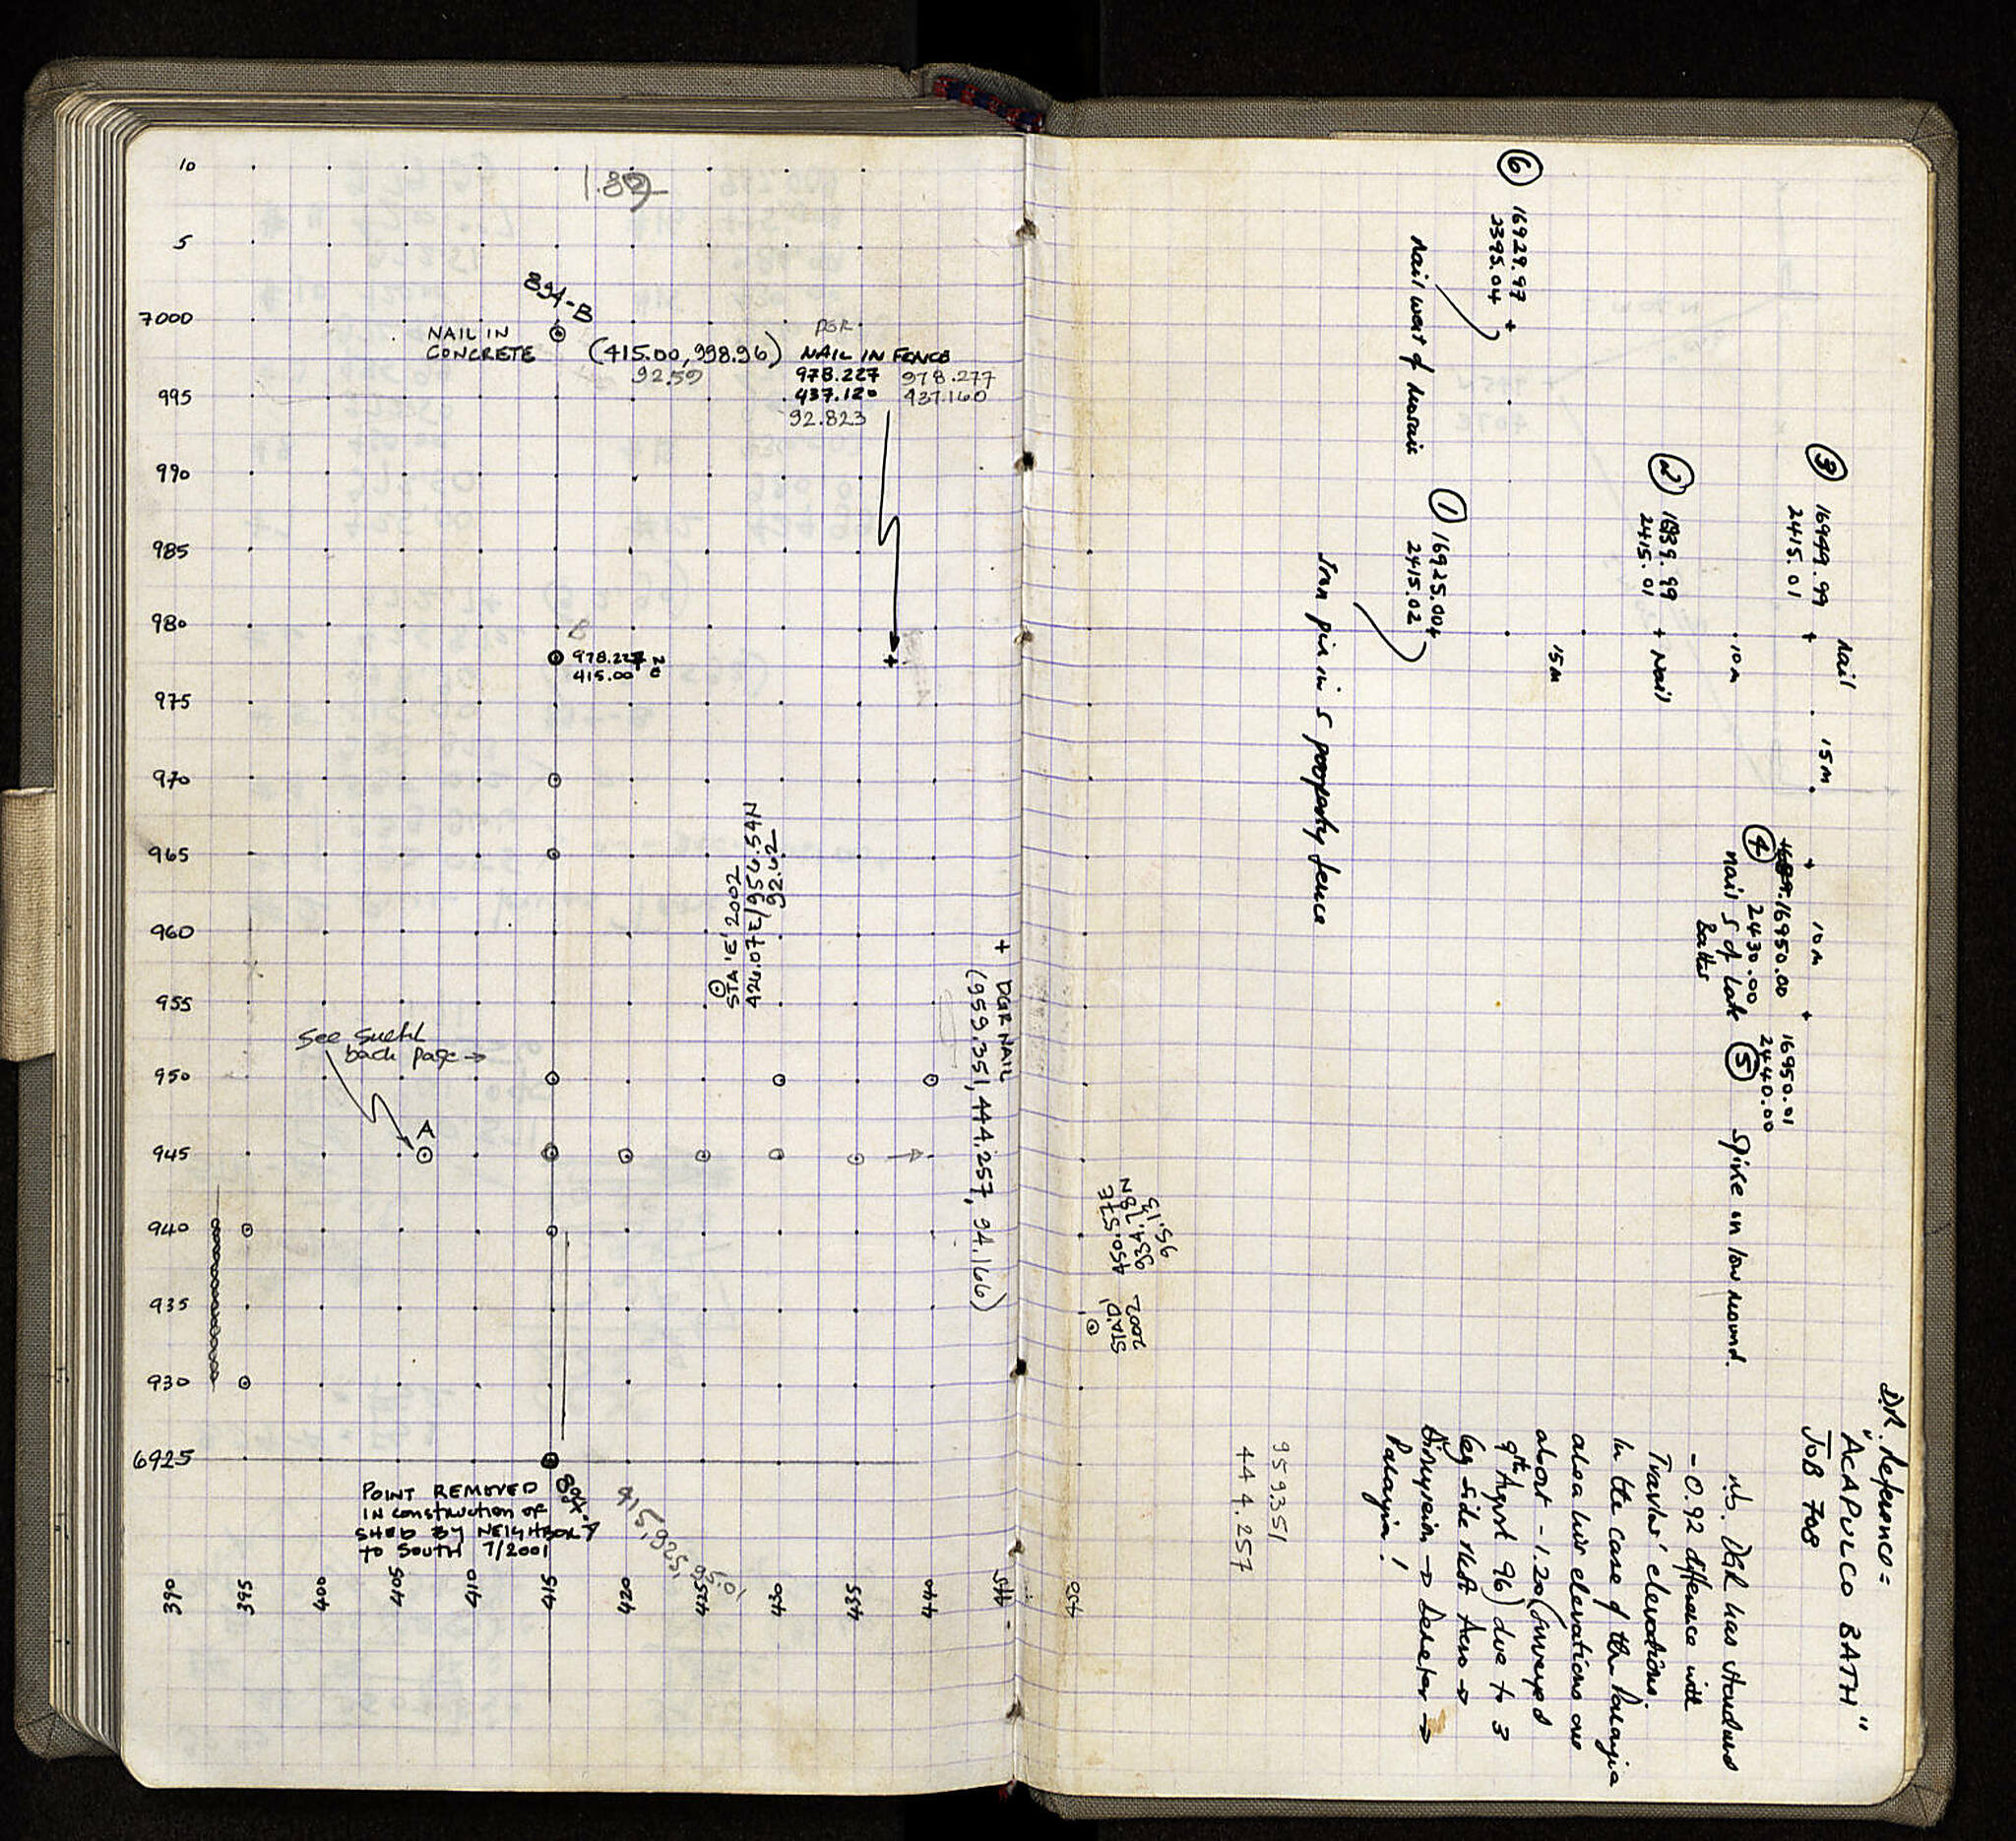 10
1.82
5
894-B
7000
NAIL IN
CONCRETE
(415.00, 998.96)
92.59
DGR
NAIL IN FENCE
978.227 978.277
437.120 437.160
92.823
995
990
985
980
B
978.227 N
415.00 E
975
970
965
STA 'E' 2002
426.07E/956.54N
92.62
960
955
+ DGR NAIL
(959.351, 444.257, 94.166)
see
back page →
950
A
945
940
935
930
6925
894-A
415, 6925,
95.01
POINT REMOVED
IN construction of
SHED BY NEIGHBOR
to SOUTH 7/2001
390
395
400
405
410
415
420
425
430
435
440
445
450
STA 'D'
2002
450.57E
934.78N
95.13
D.R. Reference =
"ACAPULCO BATH"
JOB 708
n.b. DGR has standard
-0.92 difference with
Travlos' elevations.
In the case of the Palagia
area his elevations are
about -1.20 (surveyed
9th August 96) due to 3
leg side shot Acro →
Dionysion → Demeter →
Palagia!
959.351
444.257
③ 16949.99
2415.01
+ nail
15m
10m
② 16939.99
2415.01
+ Nail
15m
① 16925.00
2415.02
Iron pin in S property fence
⑥ 16929.97
2395.04
+
Nail west of mosaic
④ 16950.00
2430.00
nail S of late
10m
⑤ 16950.01
2440.00
Spike in low mound.